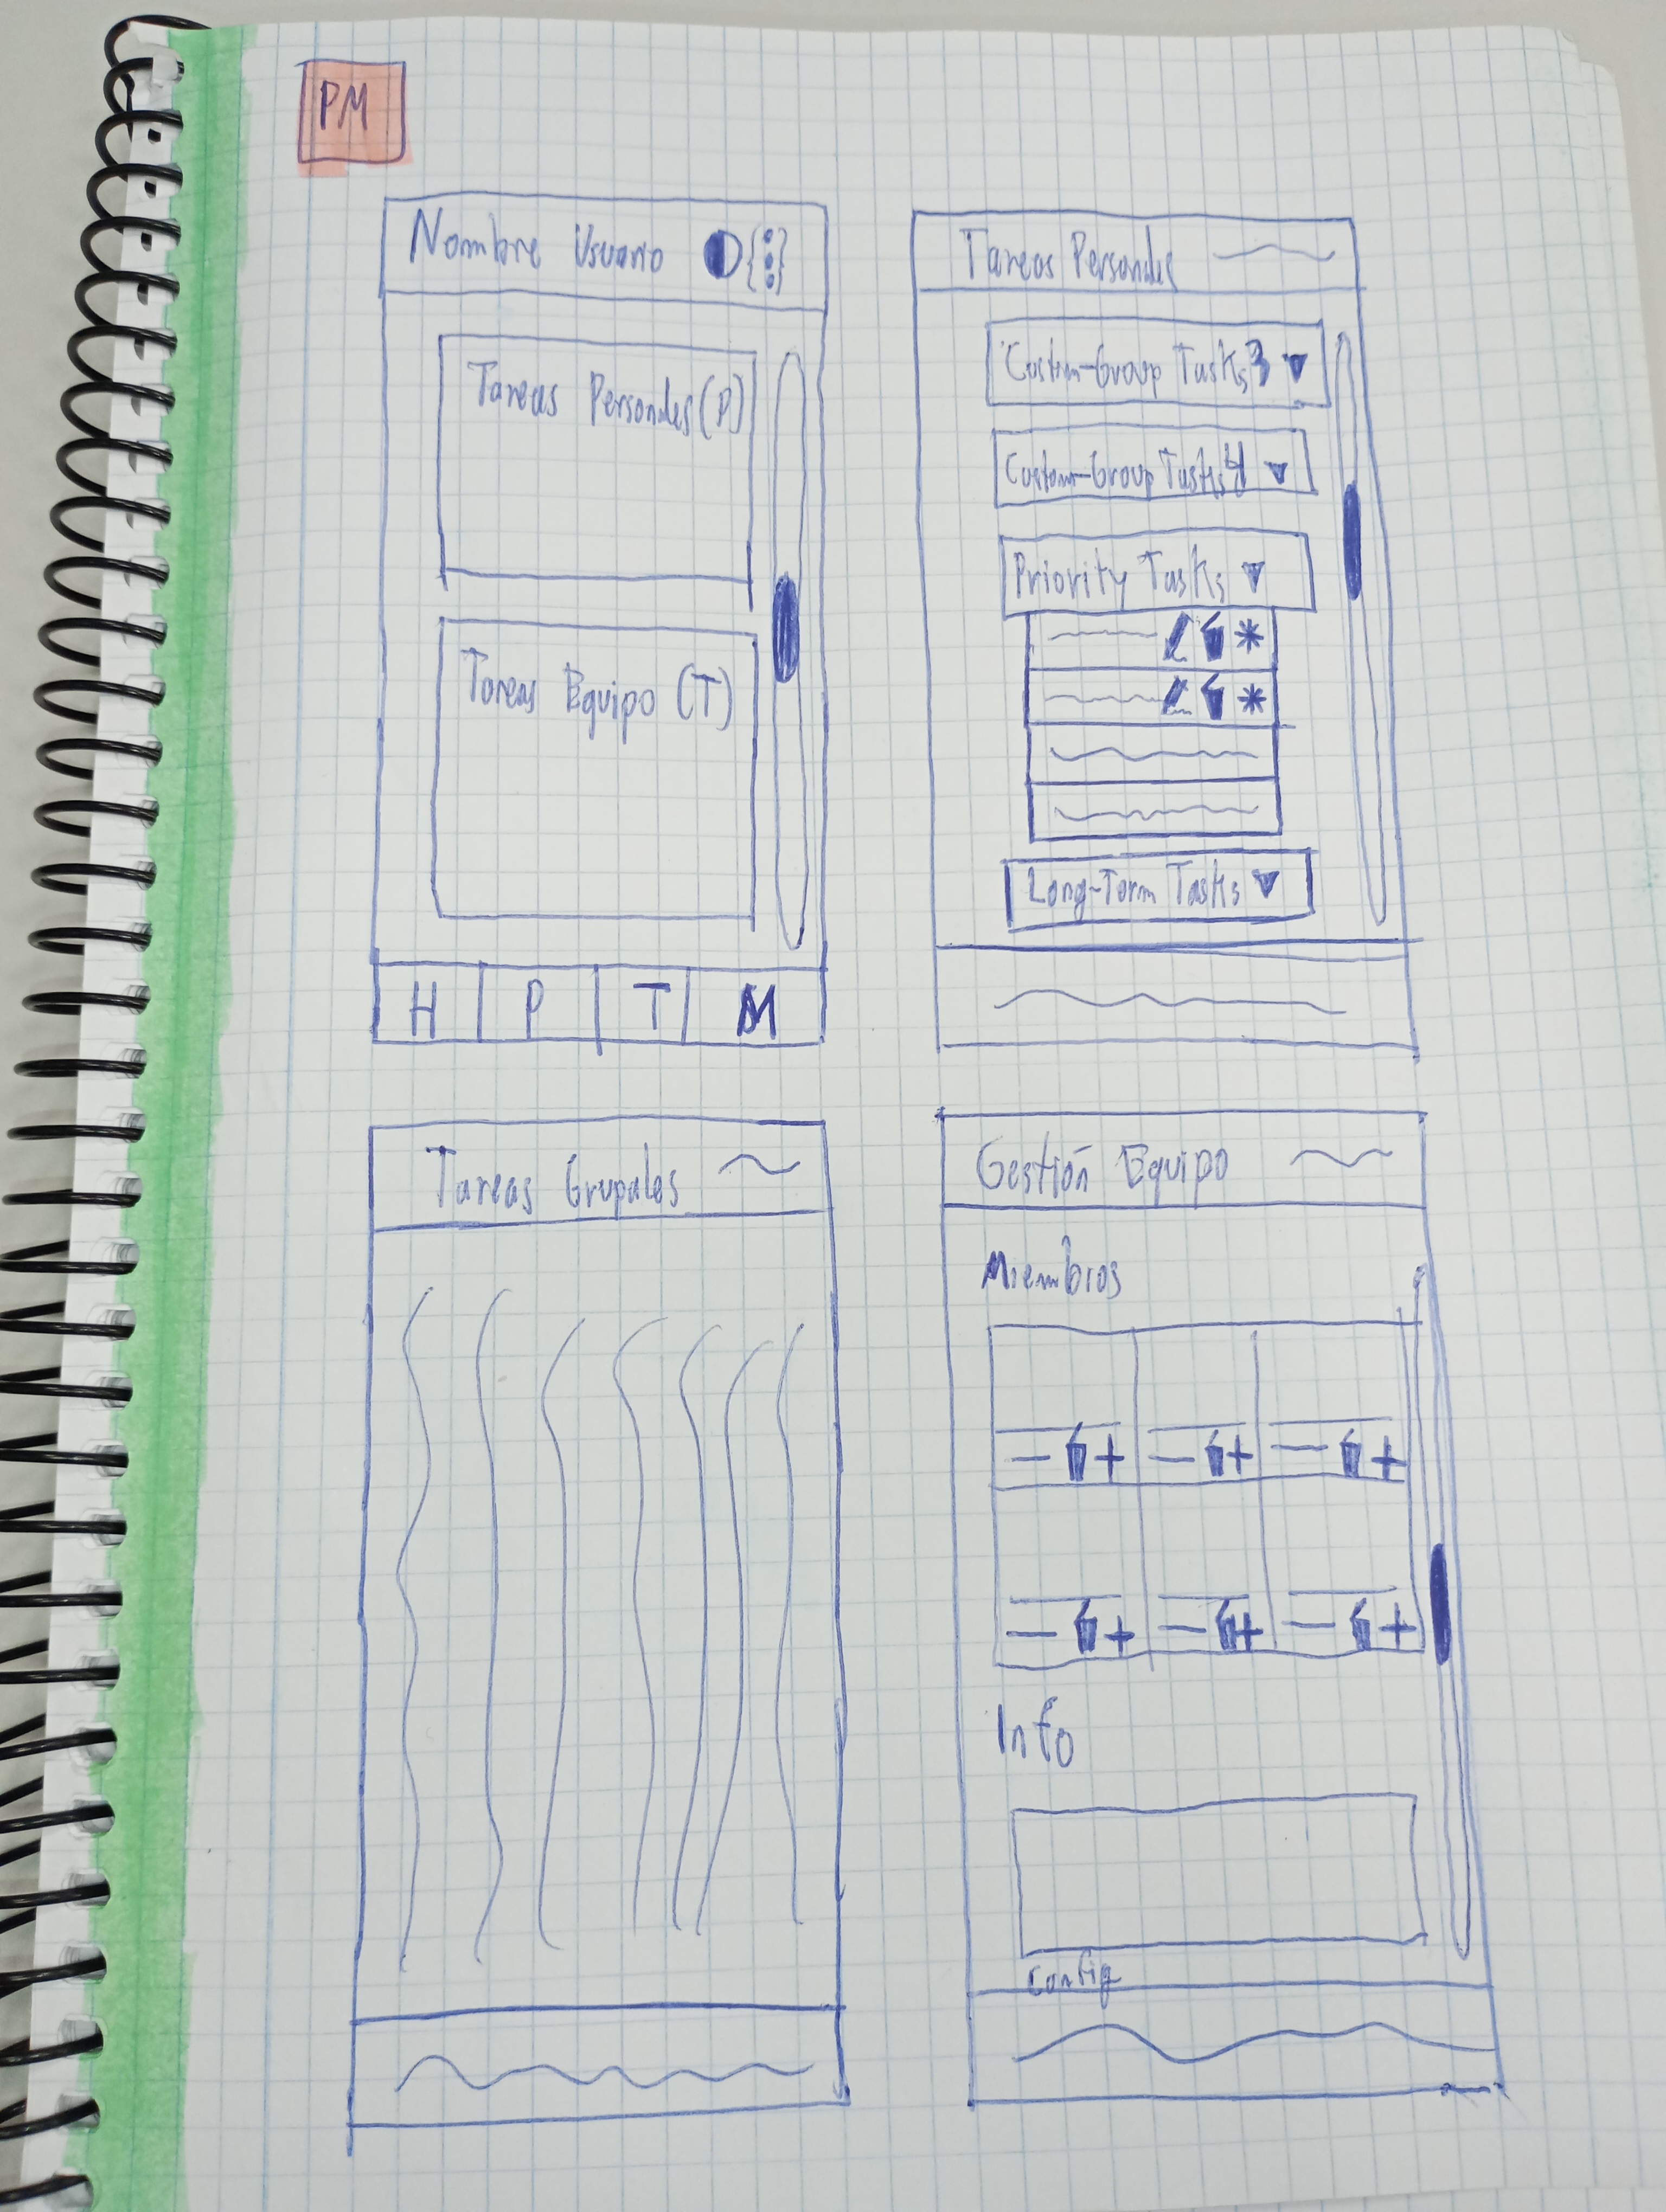 PM
Nombre Usuario
Tareas Personales (P)
Tareas Equipo (T)
H P T M
Tareas Personales
Custom-Group Tasks 3
Custom-Group Tasks 4
Priority Tasks
Long-Term Tasks
Tareas Grupales
Gestión Equipo
Miembros
Info
Config